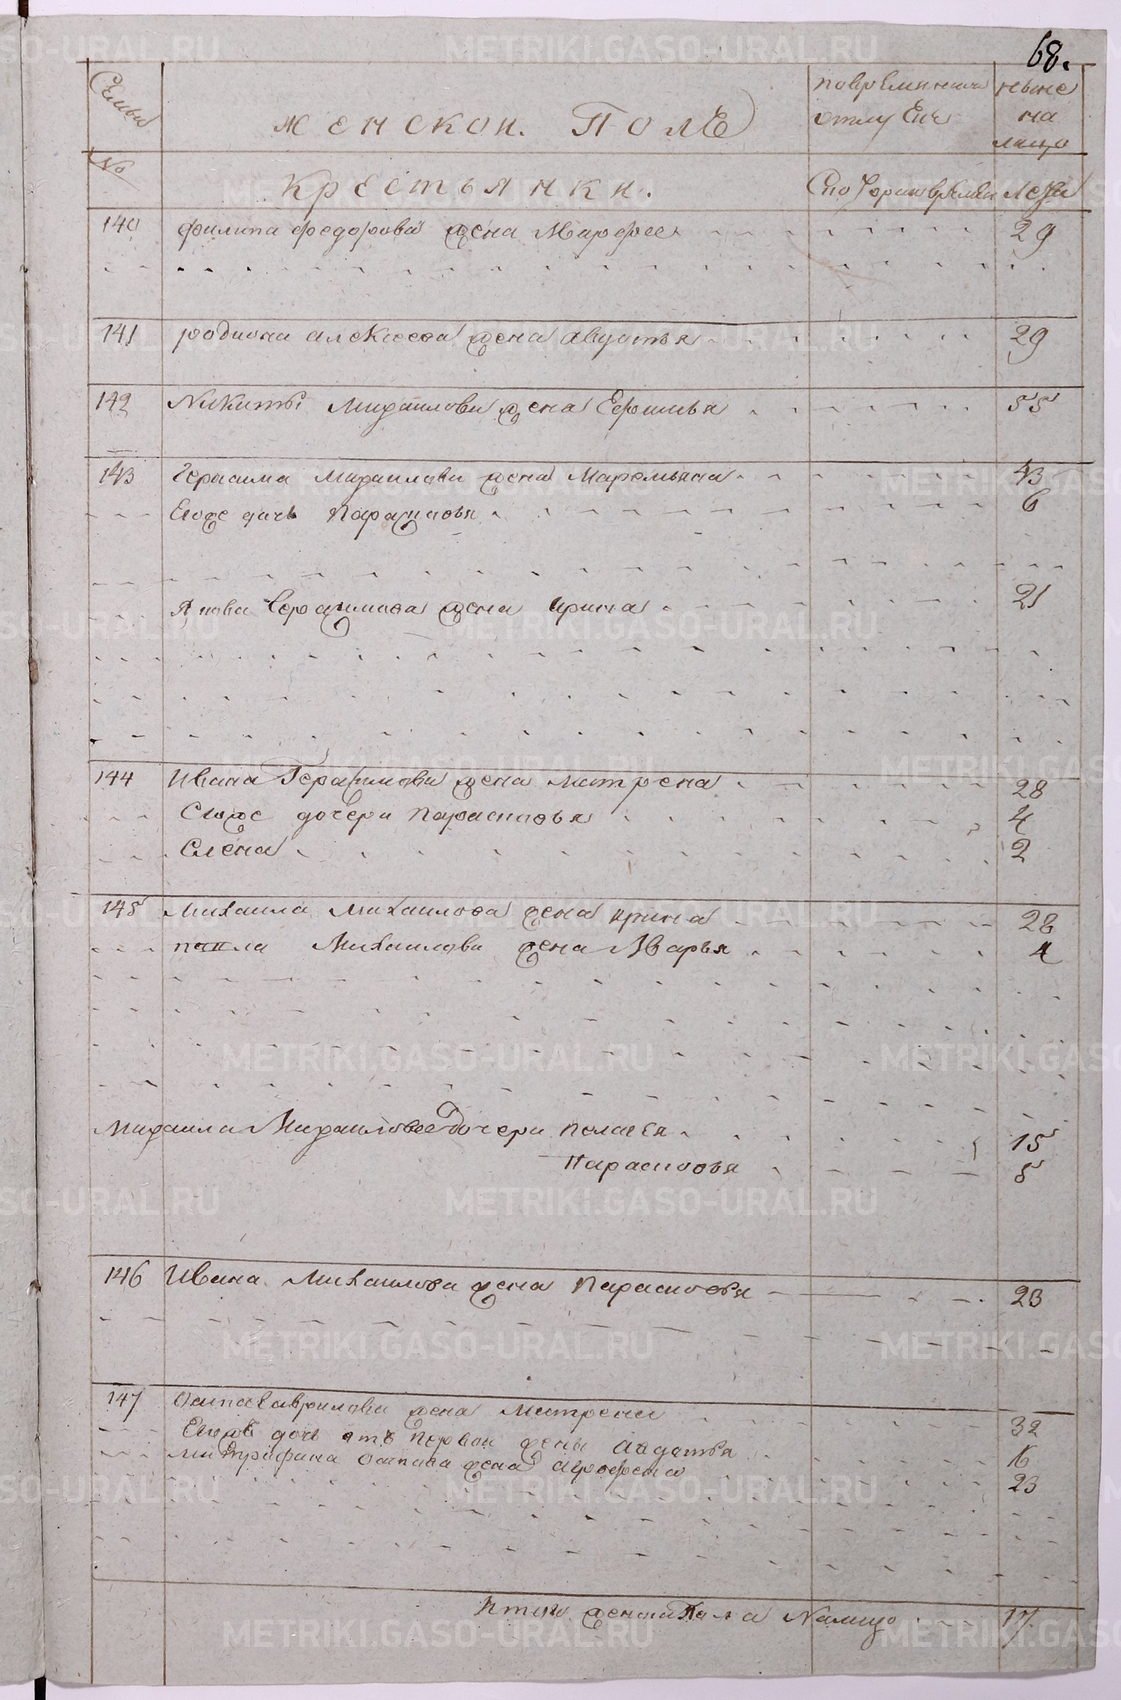 68.
Семьи
женской Полъ
во временной
отлучке
ныне
на
лицо
№
крестьянки.
Лета
140 филипа федорова жена Марфа 29
141 родиона алексеева жена авдотья 29
142 Никиты Михаилова жена Ефимья 55
143 Герасима Михаилова жена Маремьяна 43
Евоже дочь Парасковья 6
Якова Герасимова жена ирина 21
144 Ивана Герасимова жена матрена 28
Евоже дочери парасковья 4
Елена 2
145 михаила Михаилова жена ирина 28
павла Михаилова жена Марья 4
михаила Михаилова дочери пелагея 15
парасковья 8
146 Ивана Михаилова жена парасковья 23
147 Осипа Гаврилова жена матрена 32
Евоже дочь отъ первой жены авдотья 16
митрофана осипова жена агрофена 23
Итого женска пола Налицо 17
METRIKI.GASO-URAL.RU